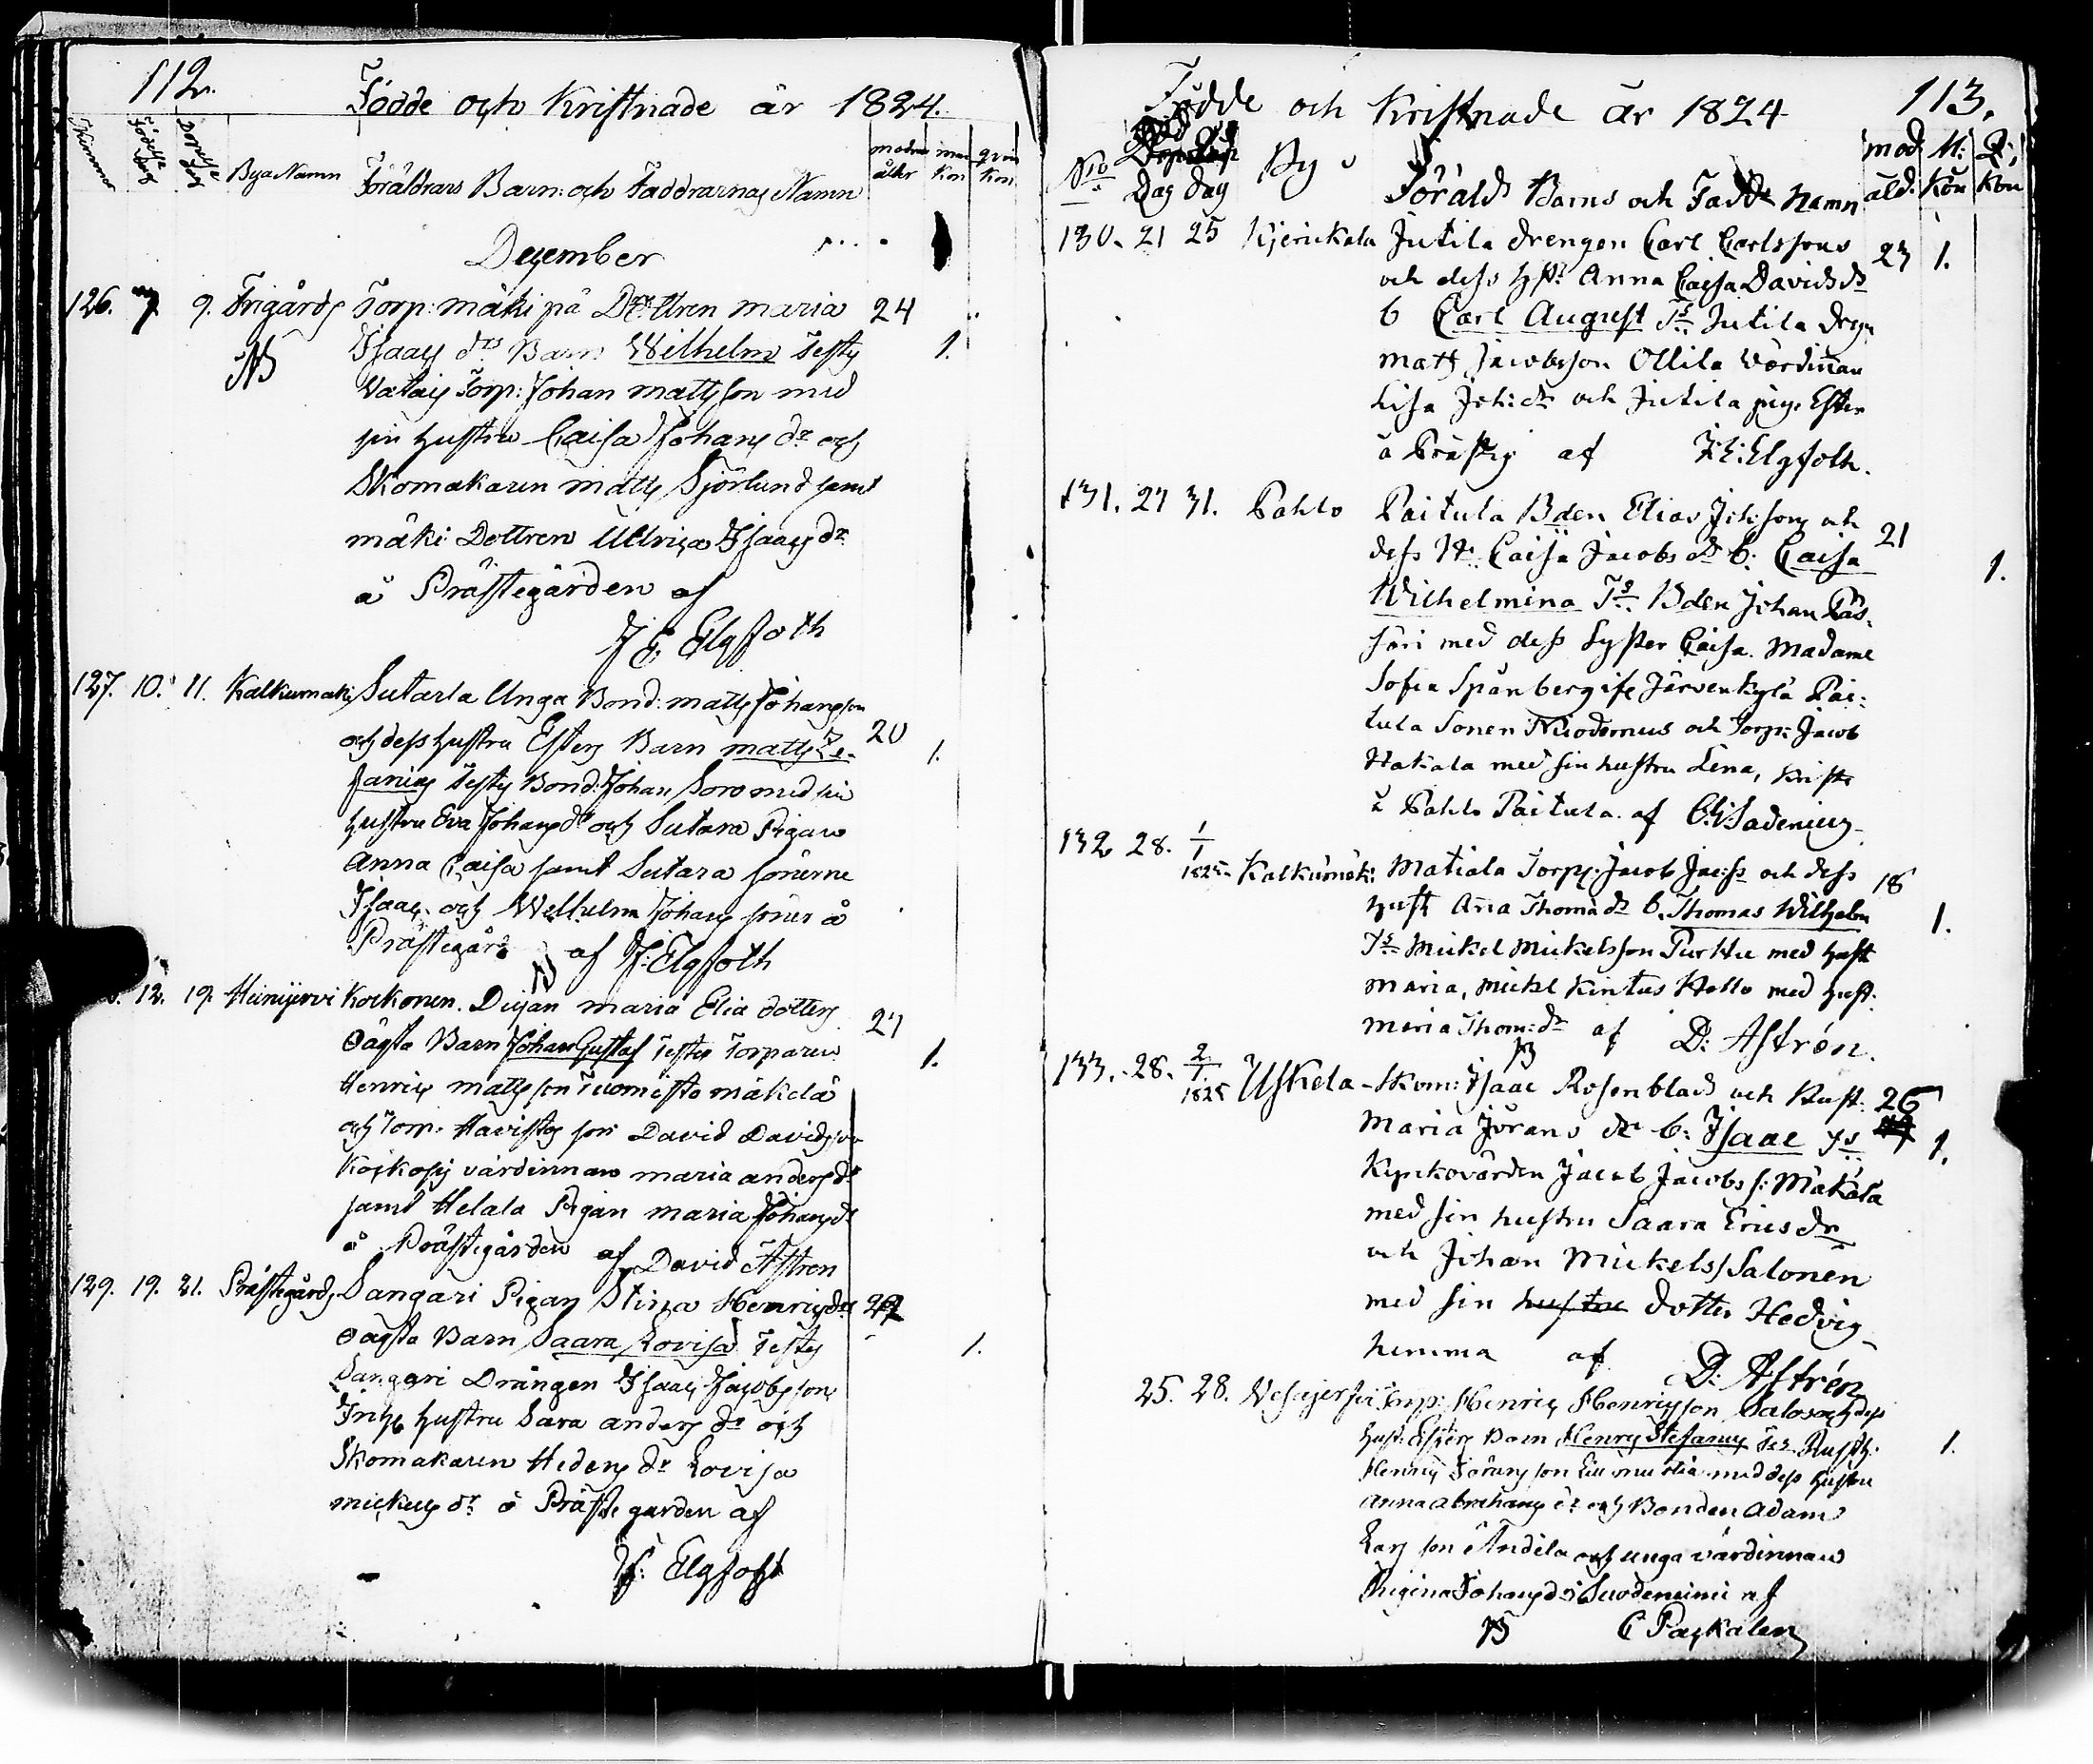 112.
Födde och Kristnade år 1824.
Födelse dag
Bya Namn
Föräldrars Barn och Faddrarnas Namn
modrens ålder
man kön
qvin kön
December
126. 7 9. Frigårds Torp: mäki på Dottren Maria 24
NB
Isaacs dr Barn Wilhelm Testes 1.
Torp: Johan Mattsson med
sin hustru Caisa Johans dr och
Skomakaren Matts Sjörlund samt
mäki Dottren Ulrica Isaacs dr
å Prästegården af
J E Elgfoth
127. 10. 11. Kalkumäki Sutarla Unga Bond: Matts Johansson
och dess hustru Esters Barn Matts Ze- 20 1.
fanias Testes Bond: Johan Soro med sin
hustru Eva Johans dr och Sutara Pigan
Anna Caisa samt Sutara sönerne
Isaac och Wilhelm Johans söner å
Prästegård af J: Elgfoth
12. 19. Heinijervi Korkonen. Pigan Maria Elia dotters 27
Oägta Barn Johan Gustaf Testes Torparen 1.
Henric Mattsson Tuomisto mäkelä
och Torp. Havistos son David Davidsson
värdinnan Maria Anders dr
samt Helala Pigan Maria Johans dr
å Prästegården af David Astren
129. 19. 21. Prästegårds Sangari Pigan Stina Henrics dr
Oägta Barn Saara Lovisa Testes 1.
Sangari Drängen Isaac Jacobsson
hustru Sara Anders dr och
Skomakaren Hedens dr Lovisa
Mickels dr å Prästegården af
J: Elgfoth
113.
Födde och Kristnade år 1824
No Dag dag By
Föräld Barns och Fadd Namn
mod. äld. M: Kön Q: Kön
130. 21 25 Kjerickala Jutila drengen Carl Carlssons 23 1.
och dess hst: Anna Caisa Davids dr
b Carl August Ts. Jutila dreng
Matts Jacobsson Ollila Värdinnan
Lisa Joh: dr och Jutila pig. Ester
å Prästg af J:E: Elgfoth.
131. 27 31. Pahlo Paitula Bden Elias Joh:sons och 21
dess H. Caisa Jacobs dr b. Caisa 1.
Wilhelmina Ts. Bden Johan Räs-
säri med dess Syster Caisa. Madame
Sofia Spånberg ifr Järvenkylä Pai-
tula Sonen Nicodemus och Torp: Jacob
Hakala med sin hustru Lena, Krist
i Pahlo Paitula. af
132 28. 1/1 1825. Kalkumäki Matiala Torp: Jacob Jac:ss och dess 18
hust Anna Thoma dr b. Thomas Wilhelm 1.
Ts Mickel Mickelsson Purttu med hust
Maria, Mickel Kintus Hollo med hust.
Maria Thom: dr af D: Astrén.
NB
133. 28. 2/1 1825 Uskela Skom: Isaac Rosenblad och Hust. 26
Maria Jörans dr b: Isaac Ts 1.
Kyrkovärden Jacob Jacobs s: Mäkälä
med sin hustru Saara Erics dr
och Johan Mickels s Salonen
med sin hustru dotter Hedvig
hemma af D: Astrén
25. 28. Torp: Henric Henricsson Salo och dess
hust: Esters Barn Henric Stefanus Tes Rusth: 1.
Henric med dess hustru
Anna Abrahams dr och Bonden Adam
Lars son Andila och unga värdinnan
Regina Johans dr i Suodeniemi af
NB C Paskalen